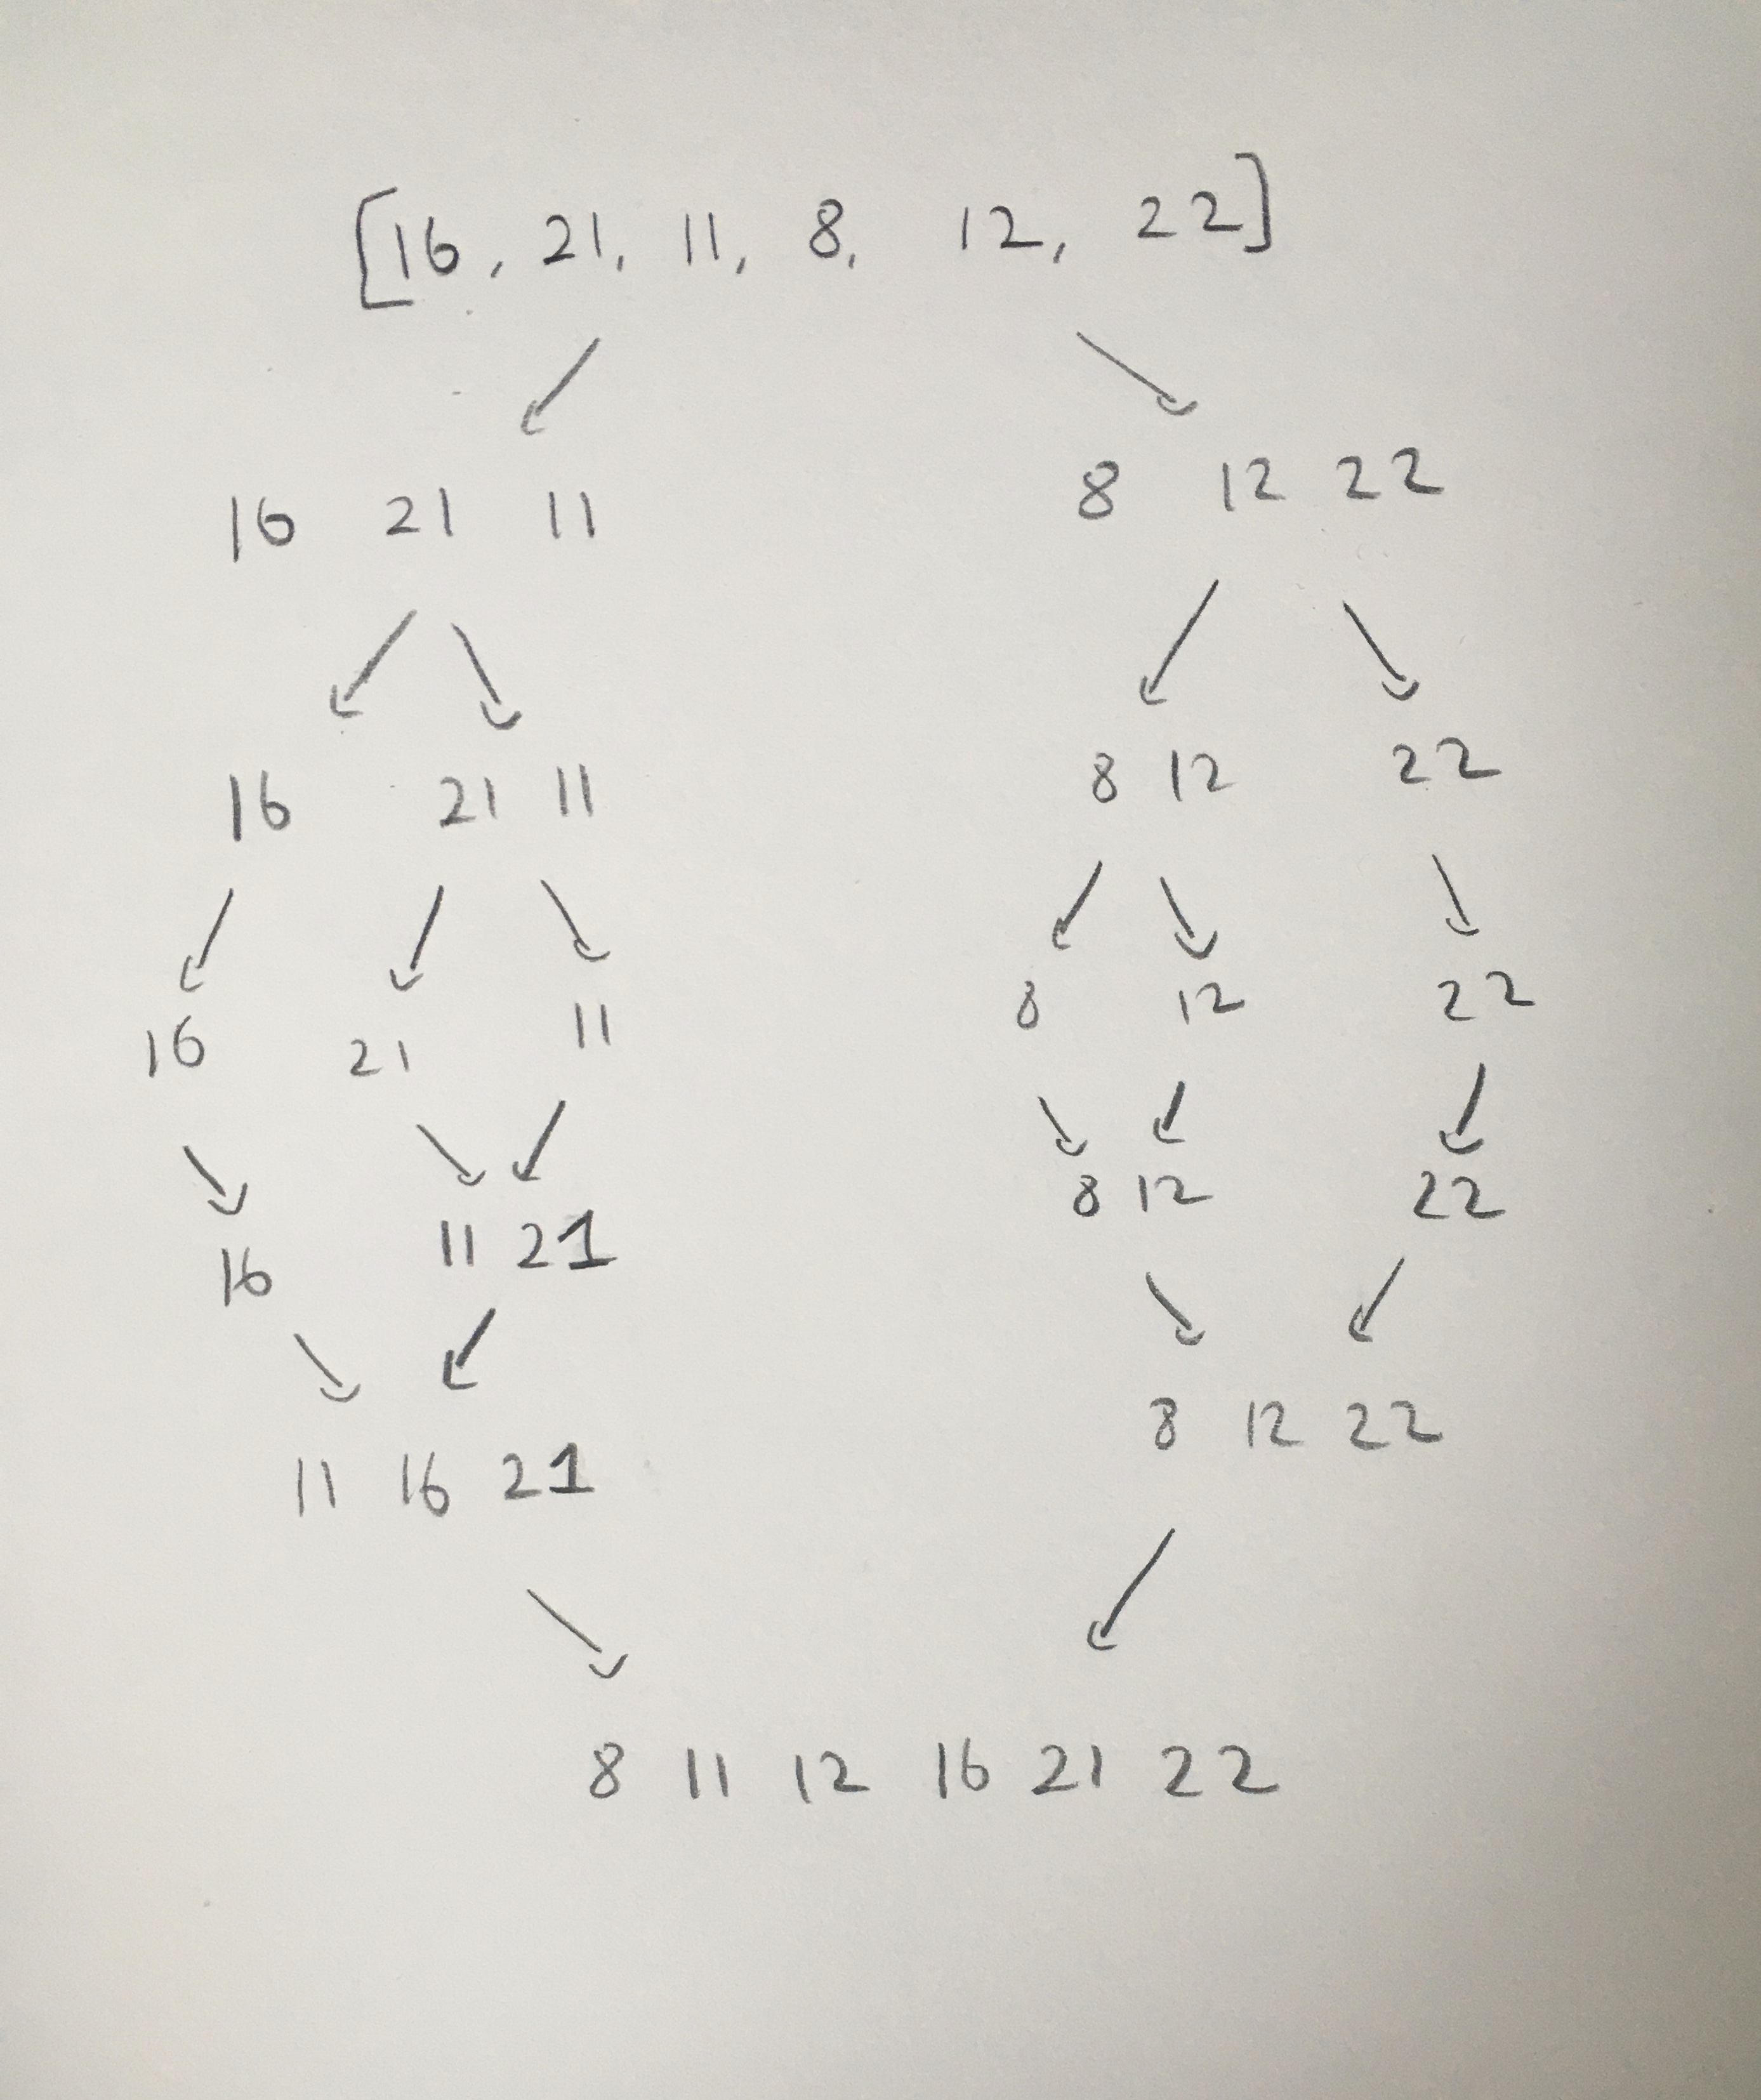 [16, 21, 11, 8, 12, 22]
16 21 11 8 12 22
16 21 11 8 12 22
16 21 11 8 12 22
16 11 21 8 12 22
11 16 21 8 12 22
8 11 12 16 21 22